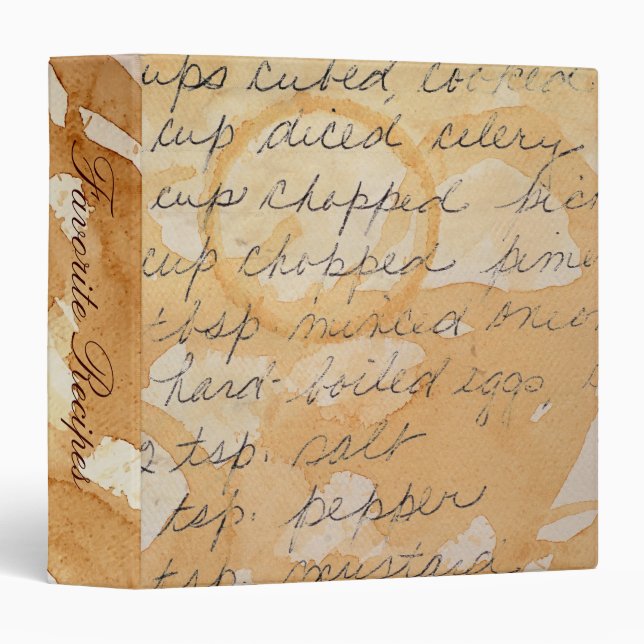 Favorite Recipes
ups cubed, cooked
cup diced celery
cup chopped pick
cup chopped pime
tbsp minced onion
hard-boiled eggs,
2 tsp. salt
tsp. pepper
tsp. mustard